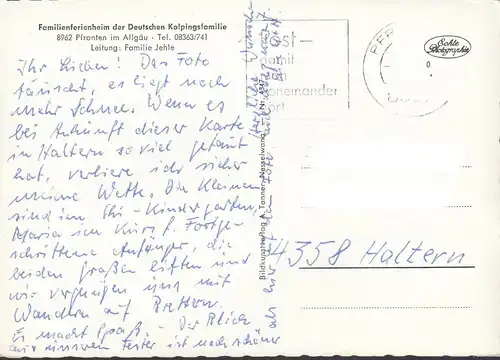 Familienferienheim der Deutschen Kolpingsfamilie
8962 Pfronten im Allgäu - Tel. 08363/741
Leitung: Familie Jehle
Ihr Lieben! Das Foto
täuscht, es liegt noch
mehr Schnee. Wenn es
bei Ankunft dieser Karte
in Haltern so viel getaut
hat, verliere ich sicher
meine Wette. Die Kleinen
sind im Ski-Kindergarten,
Maria im Kurs f. Fortge-
schrittene Anfänger, die
beiden großen liften und
wir vergnügen uns mit
Wandern auf Brettern.
Es macht Spaß. - Der Blick
aus unserem Fenster ist noch schöner
als hier auf dem Foto
Herzliche Wünsche
Bildkunstverlag A. Tanner, Nesselwang
ost-
mit
oneinander
ort
Echte
Photographie
4358 Haltern